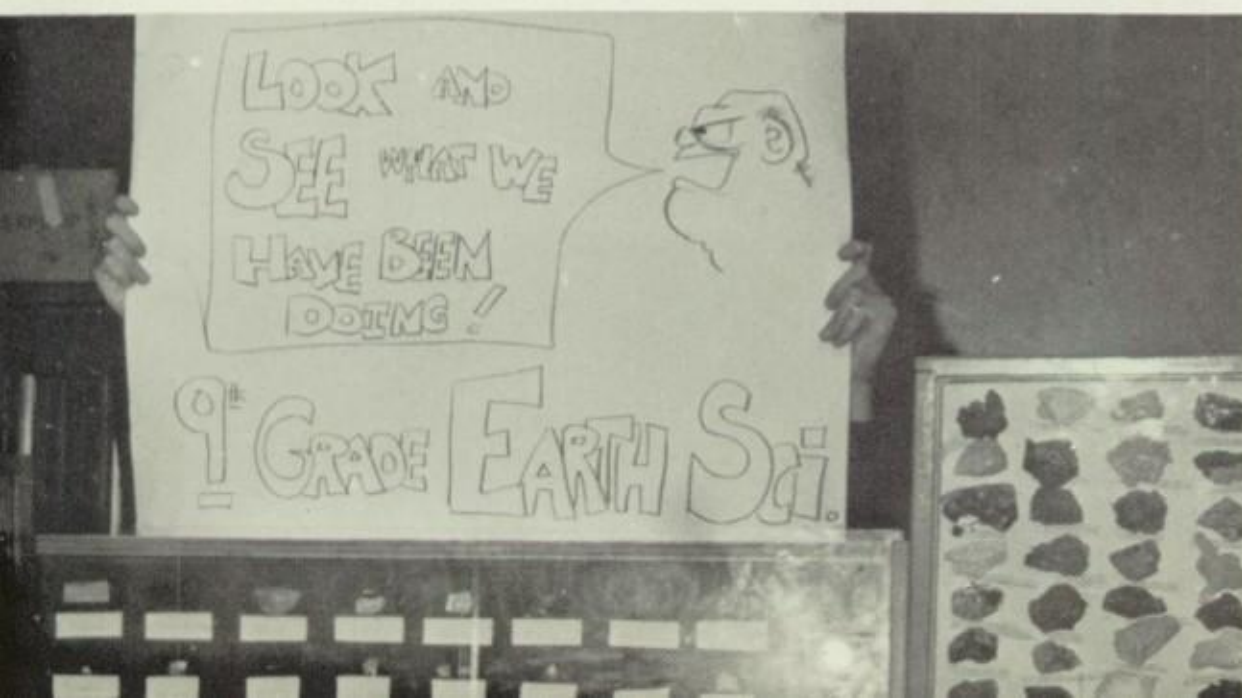 LOOK AND
SEE WHAT WE
HAVE BEEN
DOING!
9th GRADE EARTH SCI.